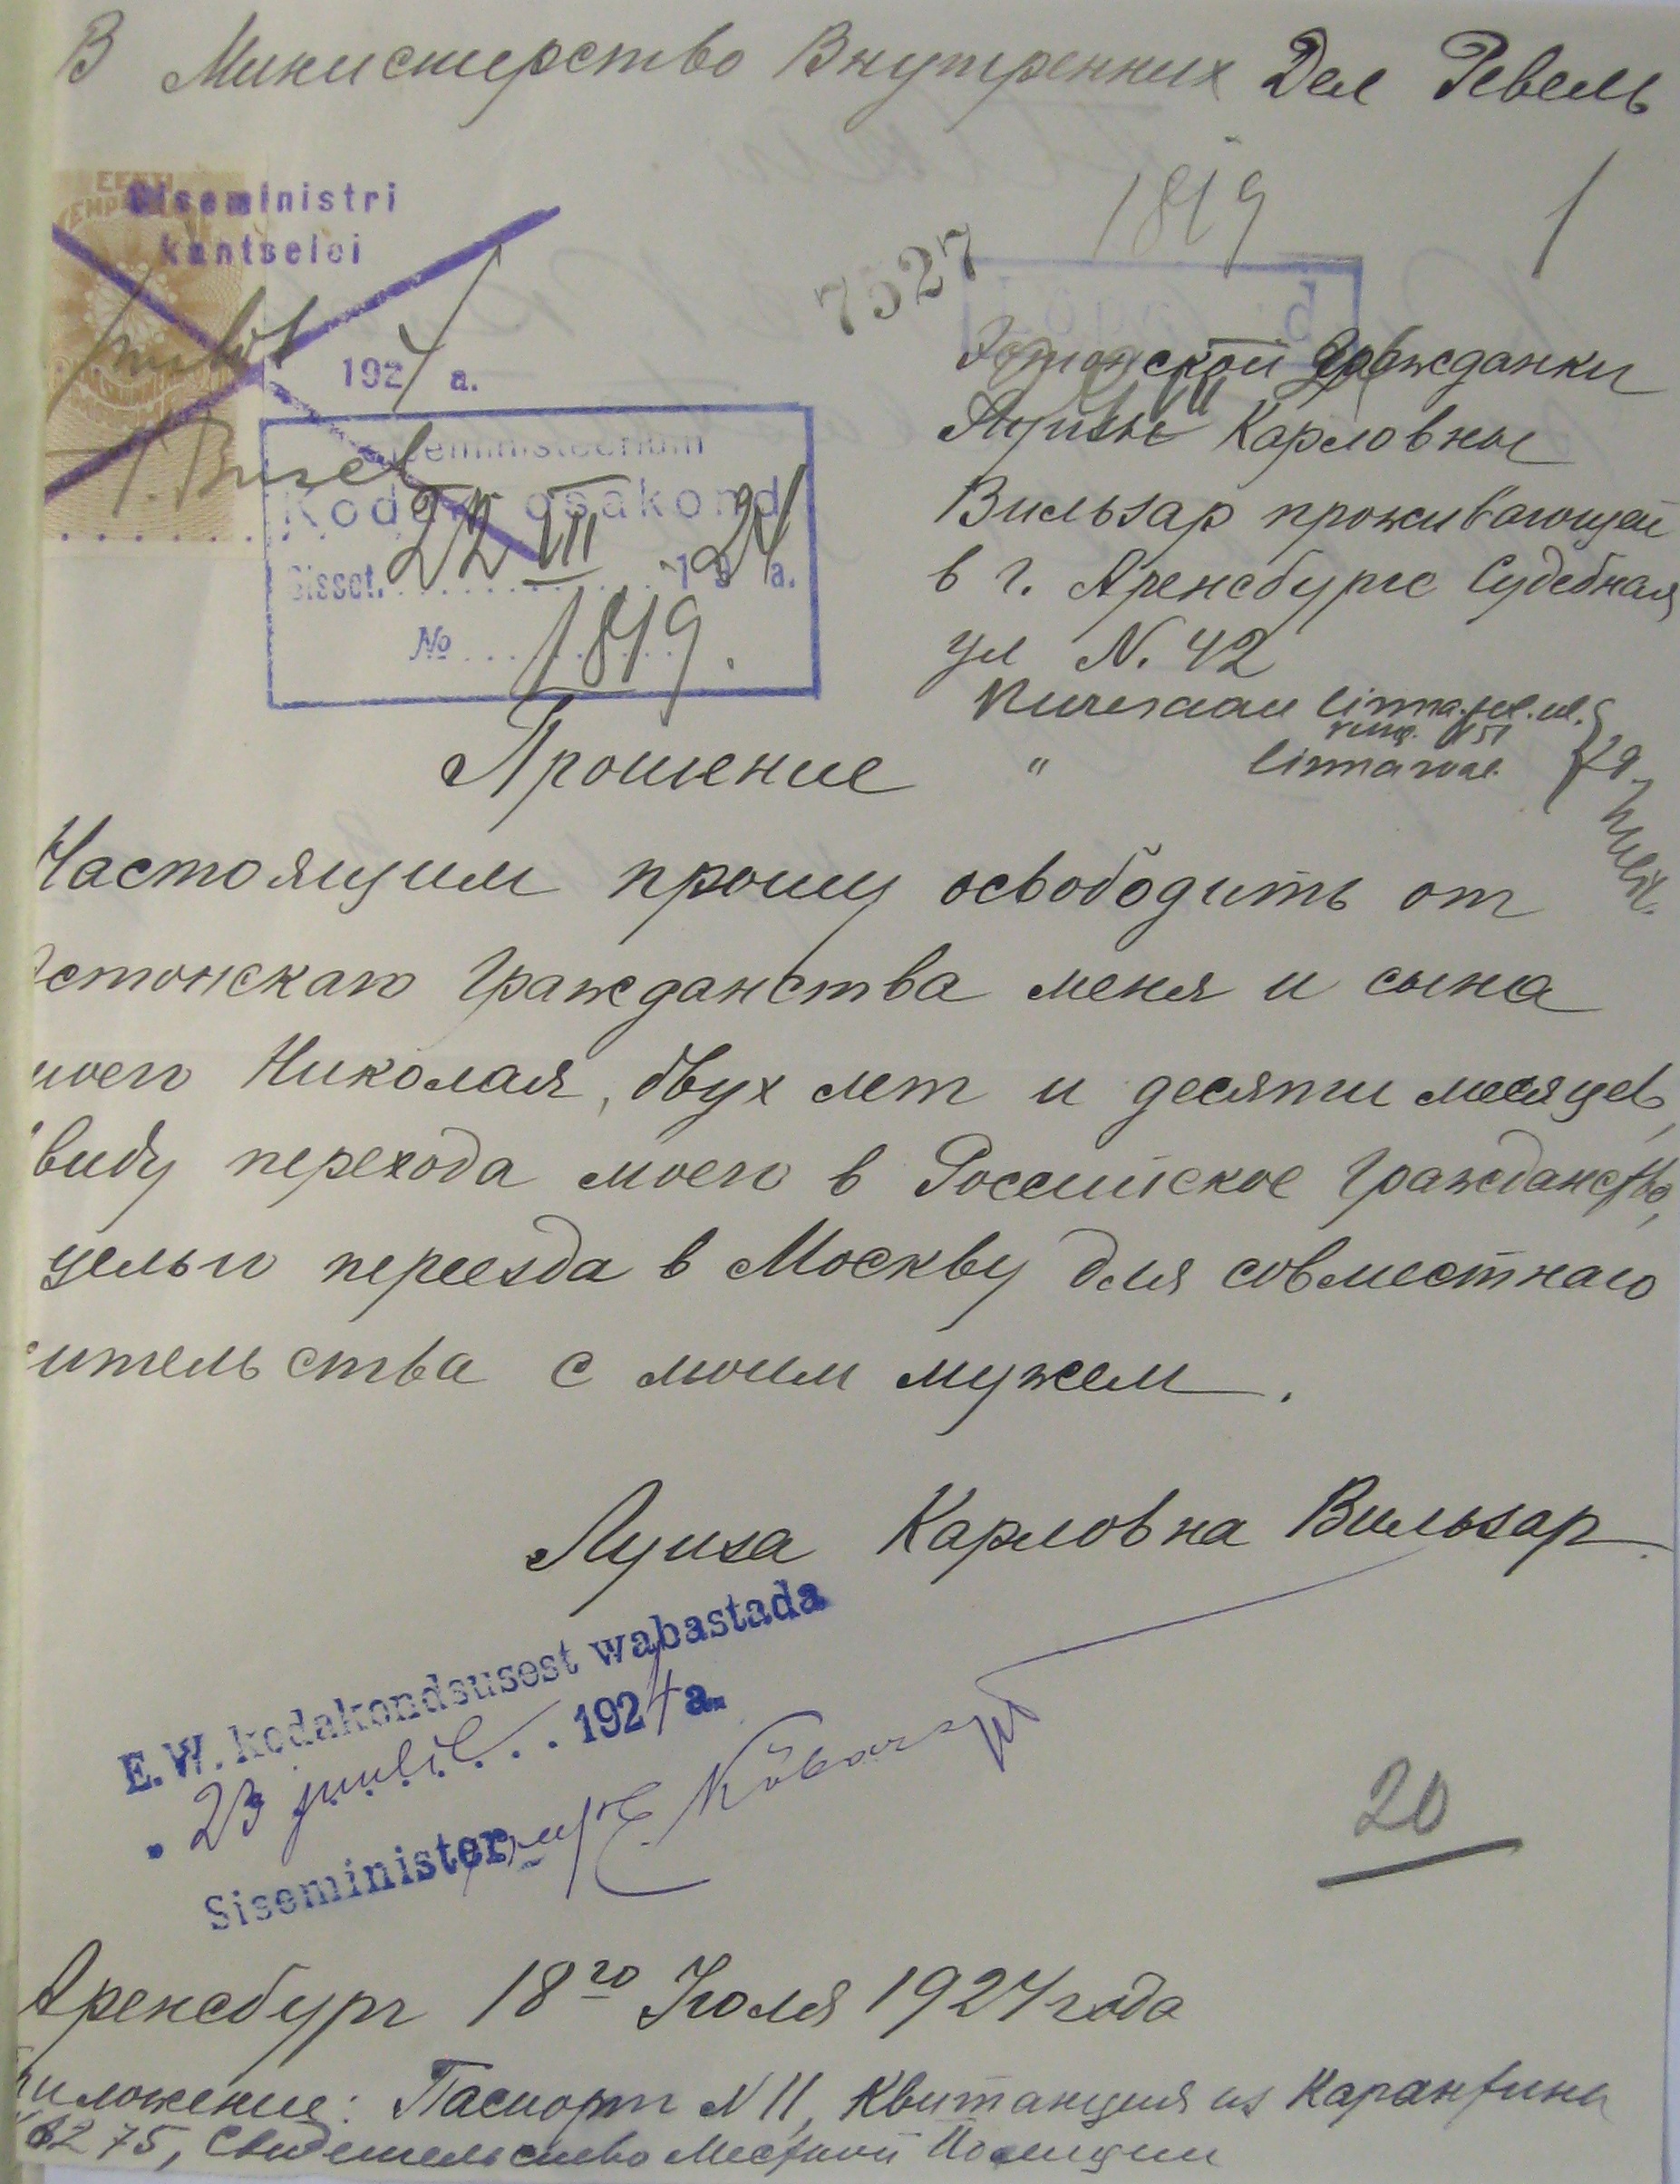 В Министерство Внутренних Дел Ревель
1819
1
7527
EESTI
Siseministri
kantselei
1924 a.
Siseministeerium
Kodak. osakond
Sisset. 22 VII 1924 a.
№ 1819.
Эстонской Гражданки
Луизы Карловны
Вильзар проживающей
в г. Аренсбурге Судебная
ул N. 42
Kuresaare linna
" linnawal.
Прошение
Настоящим прошу освободить от
Эстонскаго Гражданства меня и сына
моего Николая, двух лет и десяти месяцев,
ввиду перехода моего в Российское Гражданство,
целью переезда в Москву для совместнаго
ительства с моим мужем.
Луиза Карловна Вильзар
E. W. kodakondsusest wabastada
. 23 juulil . . 1924 a.
Siseminister
20
Аренсбург 18го Июля 1924 года
Приложение: Паспорт N 11, Квитанция из Карантина
275, Свидетельство Местной Полиции